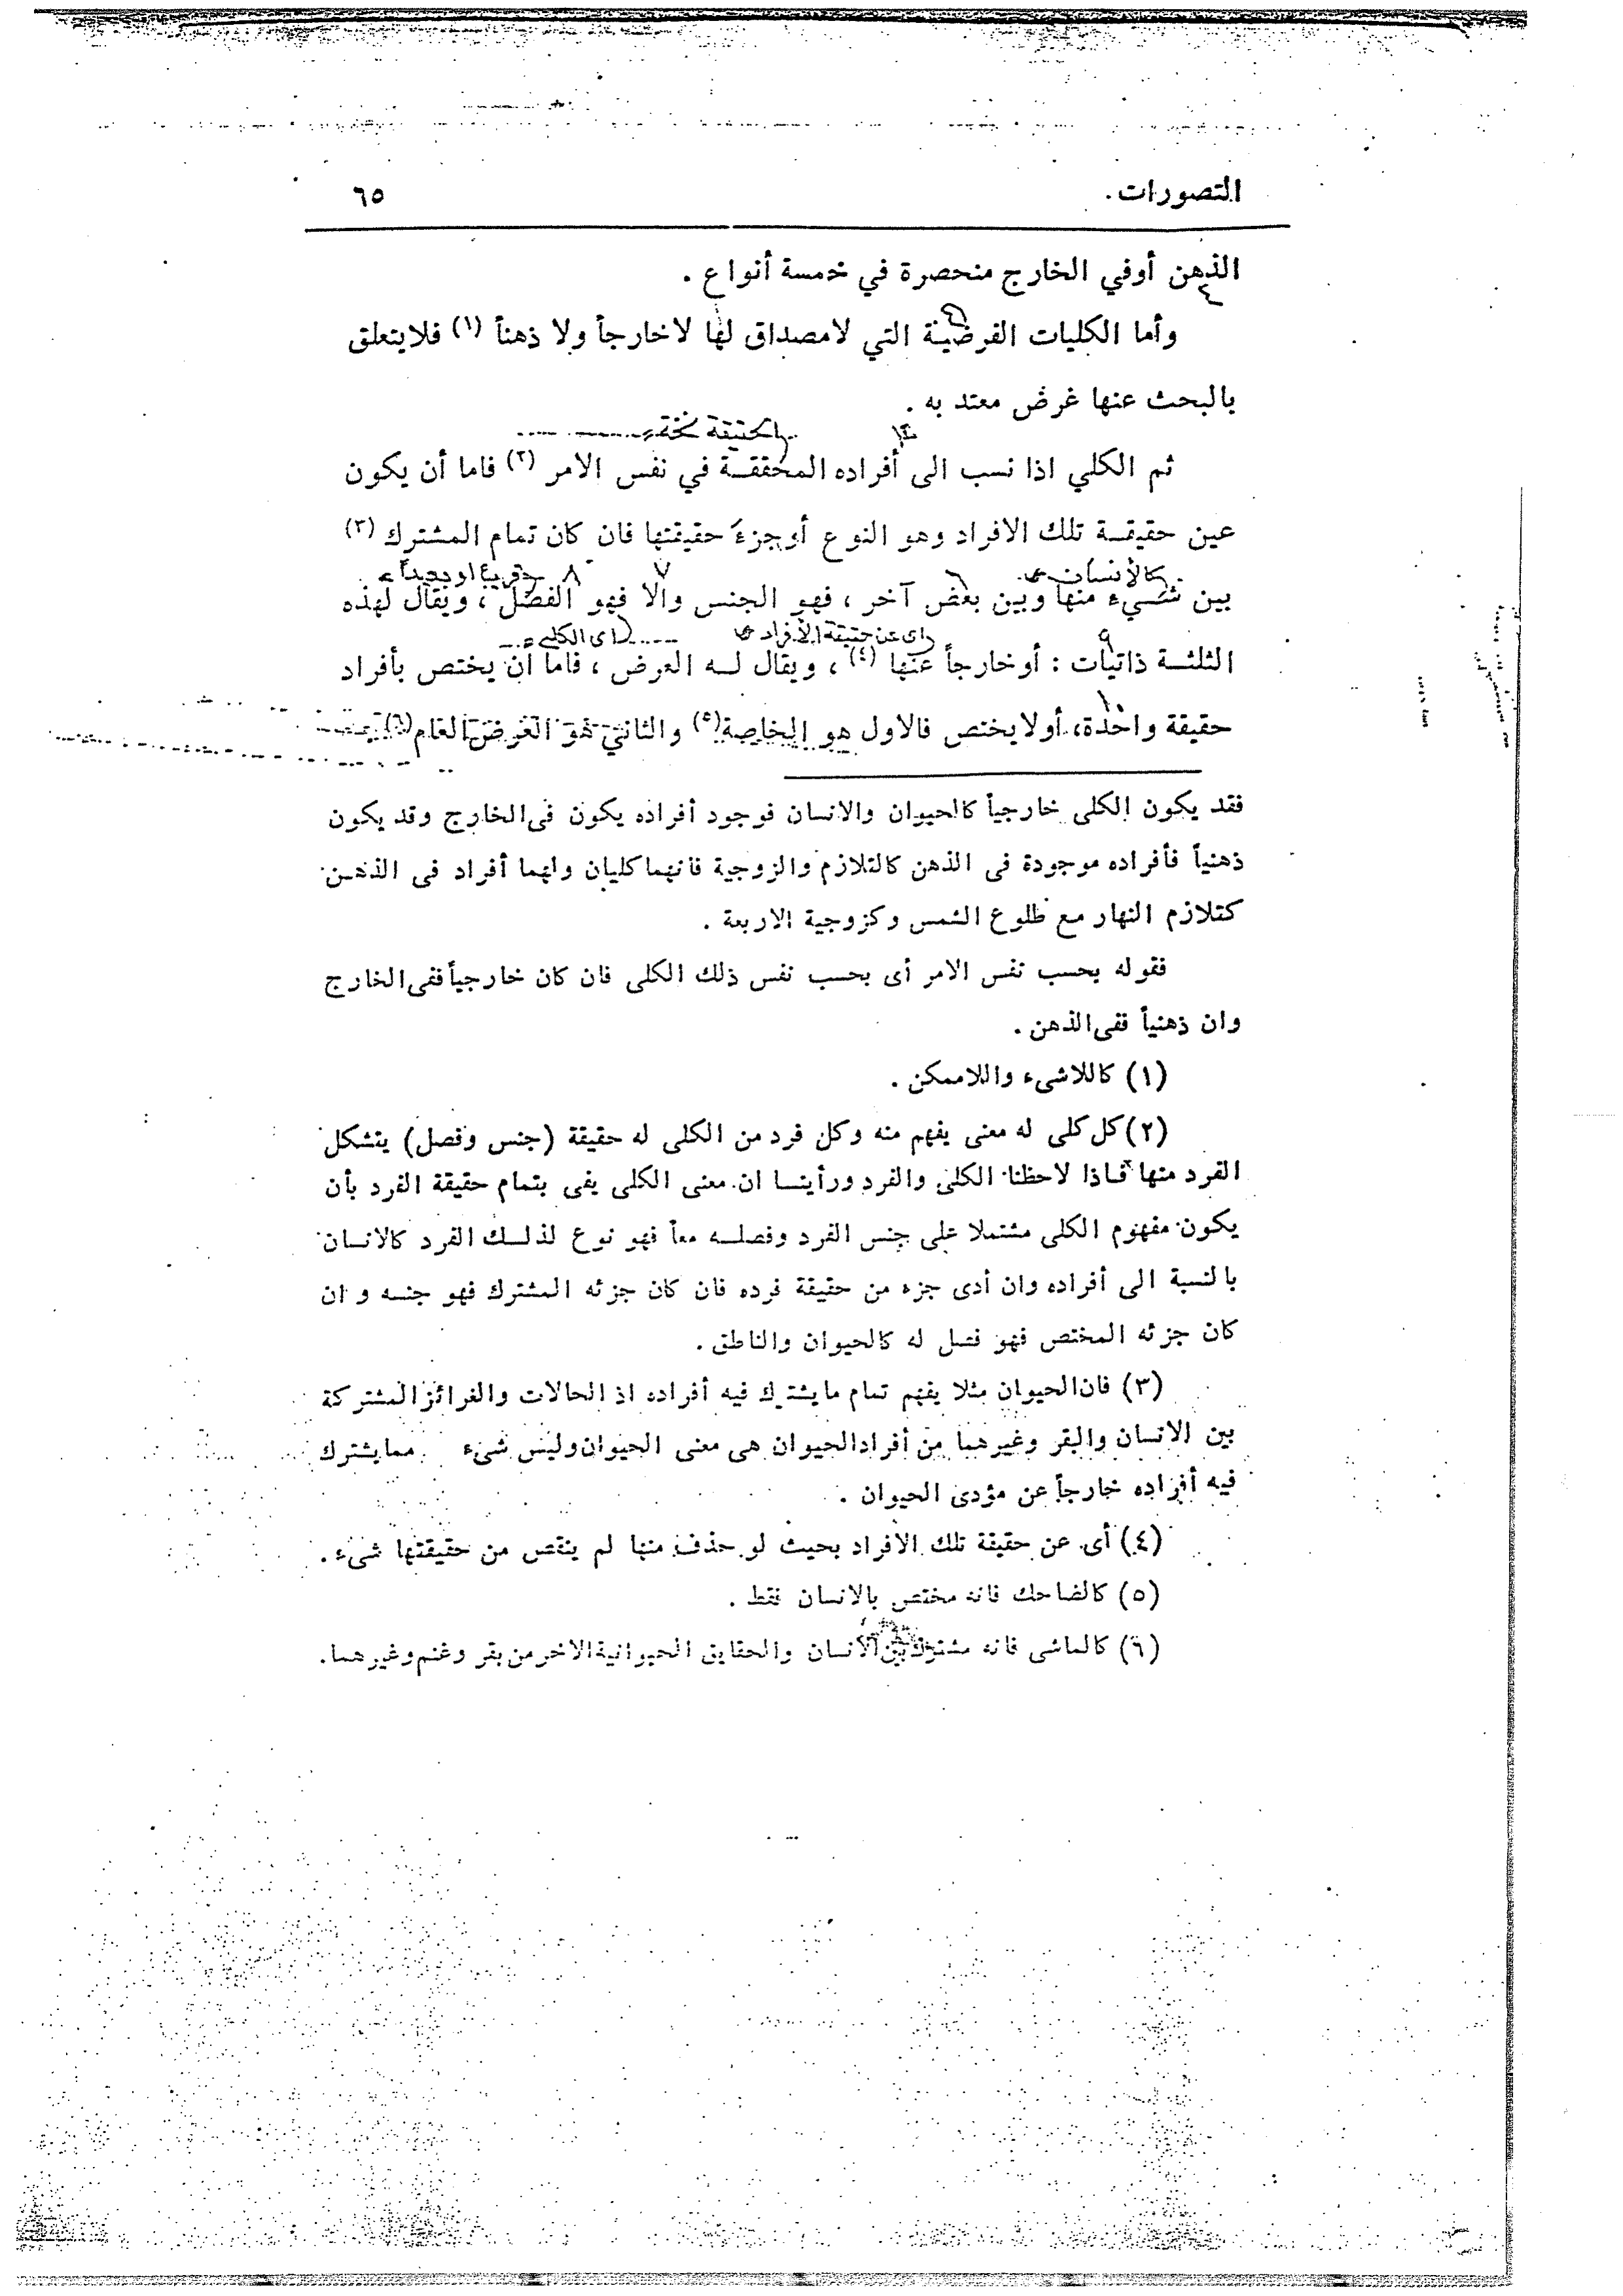 التصورات.
٦٥
الذهن أوفي الخارج منحصرة في خمسة أنواع .
٤
وأما الكليات الفرضية التي لامصداق لها لاخارجاً ولا ذهناً (١) فلايتعلق
بالبحث عنها غرض معتد به .
ثم الكلي اذا نسب الى أفراده المحققة في نفس الامر (٢) فاما أن يكون
عين حقيقة تلك الافراد وهو النوع أوجزء حقيقتها فان كان تمام المشترك (٣)
كالأنسان ٧ ٨
بين شيء منها وبين بعض آخر ، فهو الجنس والا فهو الفصل ، ويقال لهذه
اى عن حقيقة الأفراد اى الكلي
الثلثة ذاتيات : أوخارجاً عنها (٤) ، ويقال له العرض ، فاما أن يختص بأفراد
حقيقة واحدة، أولايختص فالاول هو الخاصة(٥) والثاني هو العرض العام(٦)
فقد يكون الكلى خارجياً كالحيوان والانسان فوجود أفراده يكون فى الخارج وقد يكون
ذهنياً فأفراده موجودة فى الذهن كالتلازم والزوجية فانهما كليان ولهما أفراد فى الذهن
كتلازم النهار مع طلوع الشمس وكزوجية الاربعة .
فقوله بحسب نفس الامر أى بحسب نفس ذلك الكلى فان كان خارجياً ففى الخارج
وان ذهنياً ففى الذهن .
(١) كاللاشىء واللاممكن .
(٢) كل كلى له معنى يفهم منه وكل فرد من الكلى له حقيقة (جنس وفصل) يتشكل
الفرد منها فاذا لاحظنا الكلى والفرد ورأينا ان معنى الكلى يفى بتمام حقيقة الفرد بأن
يكون مفهوم الكلى مشتملا على جنس الفرد وفصله معاً فهو نوع لذلك الفرد كالانسان
بالنسبة الى أفراده وان أدى جزء من حقيقة فرده فان كان جزئه المشترك فهو جنسه وان
كان جزئه المختص فهو فصل له كالحيوان والناطق .
(٣) فان الحيوان مثلا يفهم تمام مايشترك فيه أفراده اذ الحالات والغرائز المشتركة
بين الانسان والبقر وغيرهما من أفراد الحيوان هى معنى الحيوان وليس شىء مما يشترك
فيه أفراده خارجاً عن مؤدى الحيوان .
(٤) أى عن حقيقة تلك الافراد بحيث لو حذف منها لم ينقص من حقيقتها شىء .
(٥) كالضاحك فانه مختص بالانسان فقط .
(٦) كالماشى فانه مشترك بين الانسان والحقايق الحيوانية الاخر من بقر وغنم وغيرهما .